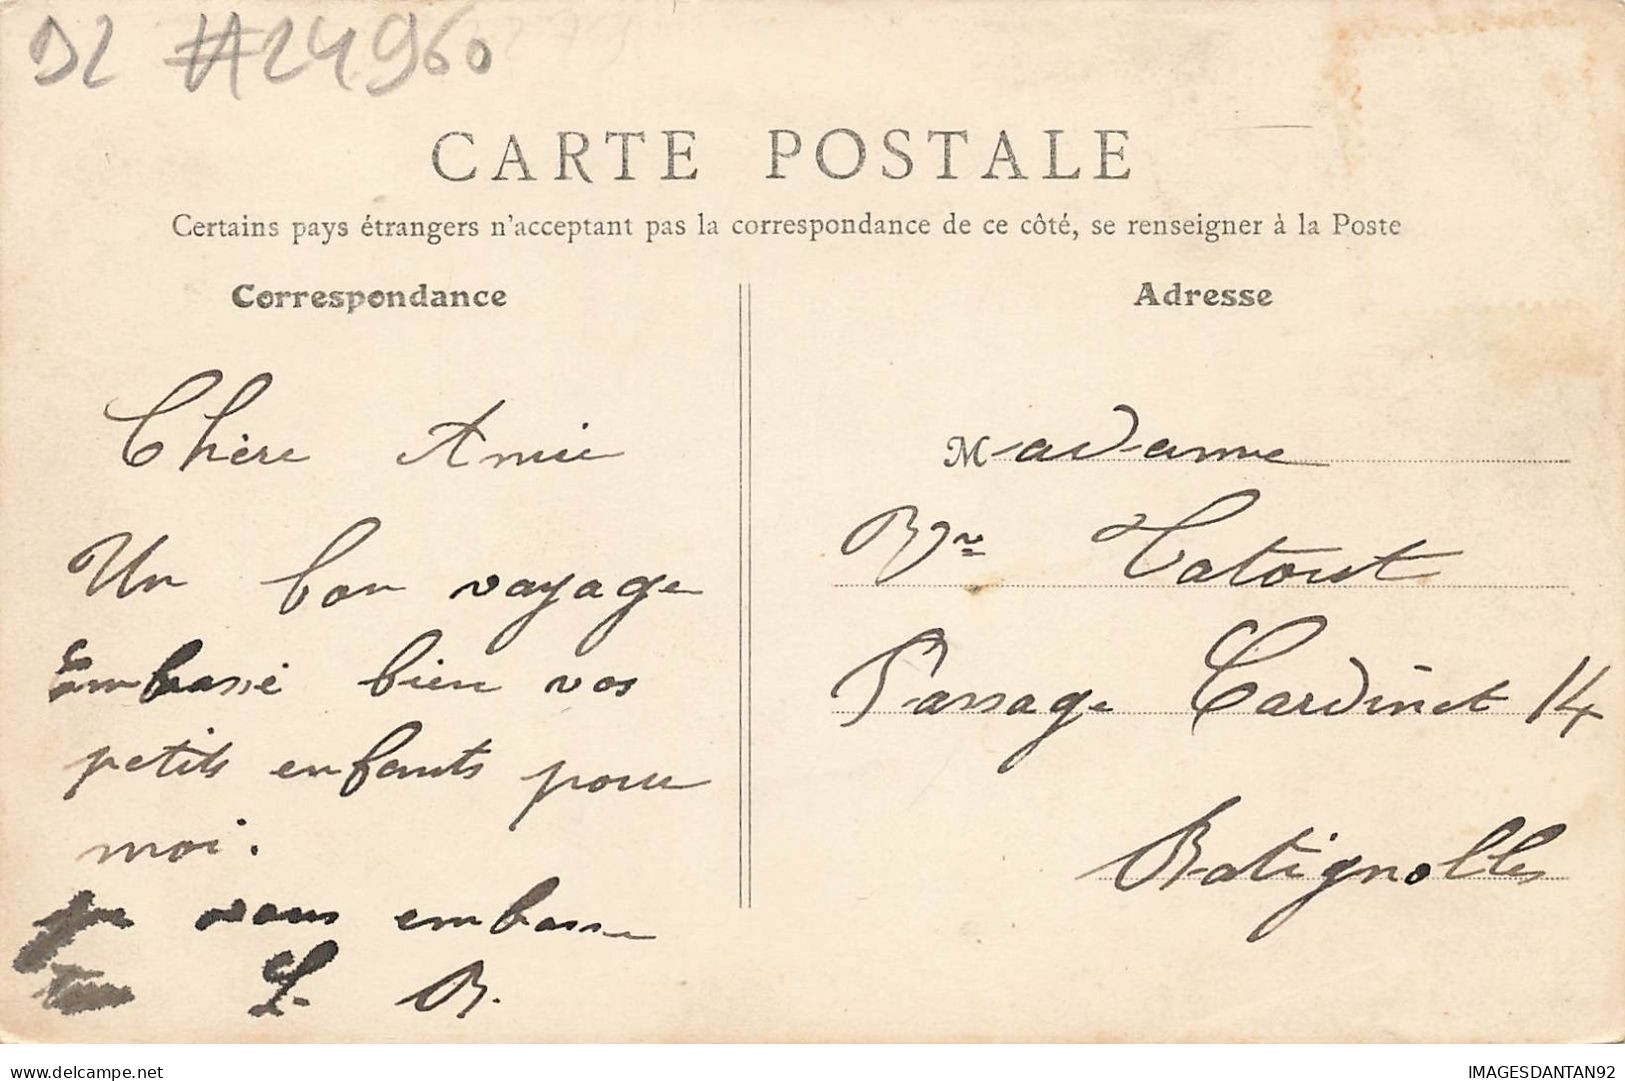 DL #24960
CARTE POSTALE
Certains pays étrangers n'acceptant pas la correspondance de ce côté, se renseigner à la Poste
Correspondance
Adresse
Chère Amie
Un bon voyage
embassé bien vos
petits enfants pour
moi.
je vous embasse
L. B.
Madame
Tatout
Passage Cardinet 14
Batignolles
delcampe.net
IMAGESDANTAN92